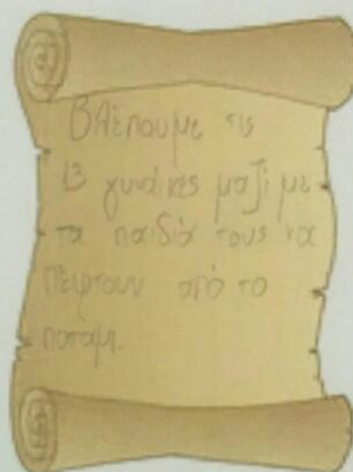 Βλέπουμε τις
13 γυναίκες μαζί με
τα παιδιά τους να
πέφτουν από το
ποτάμι.